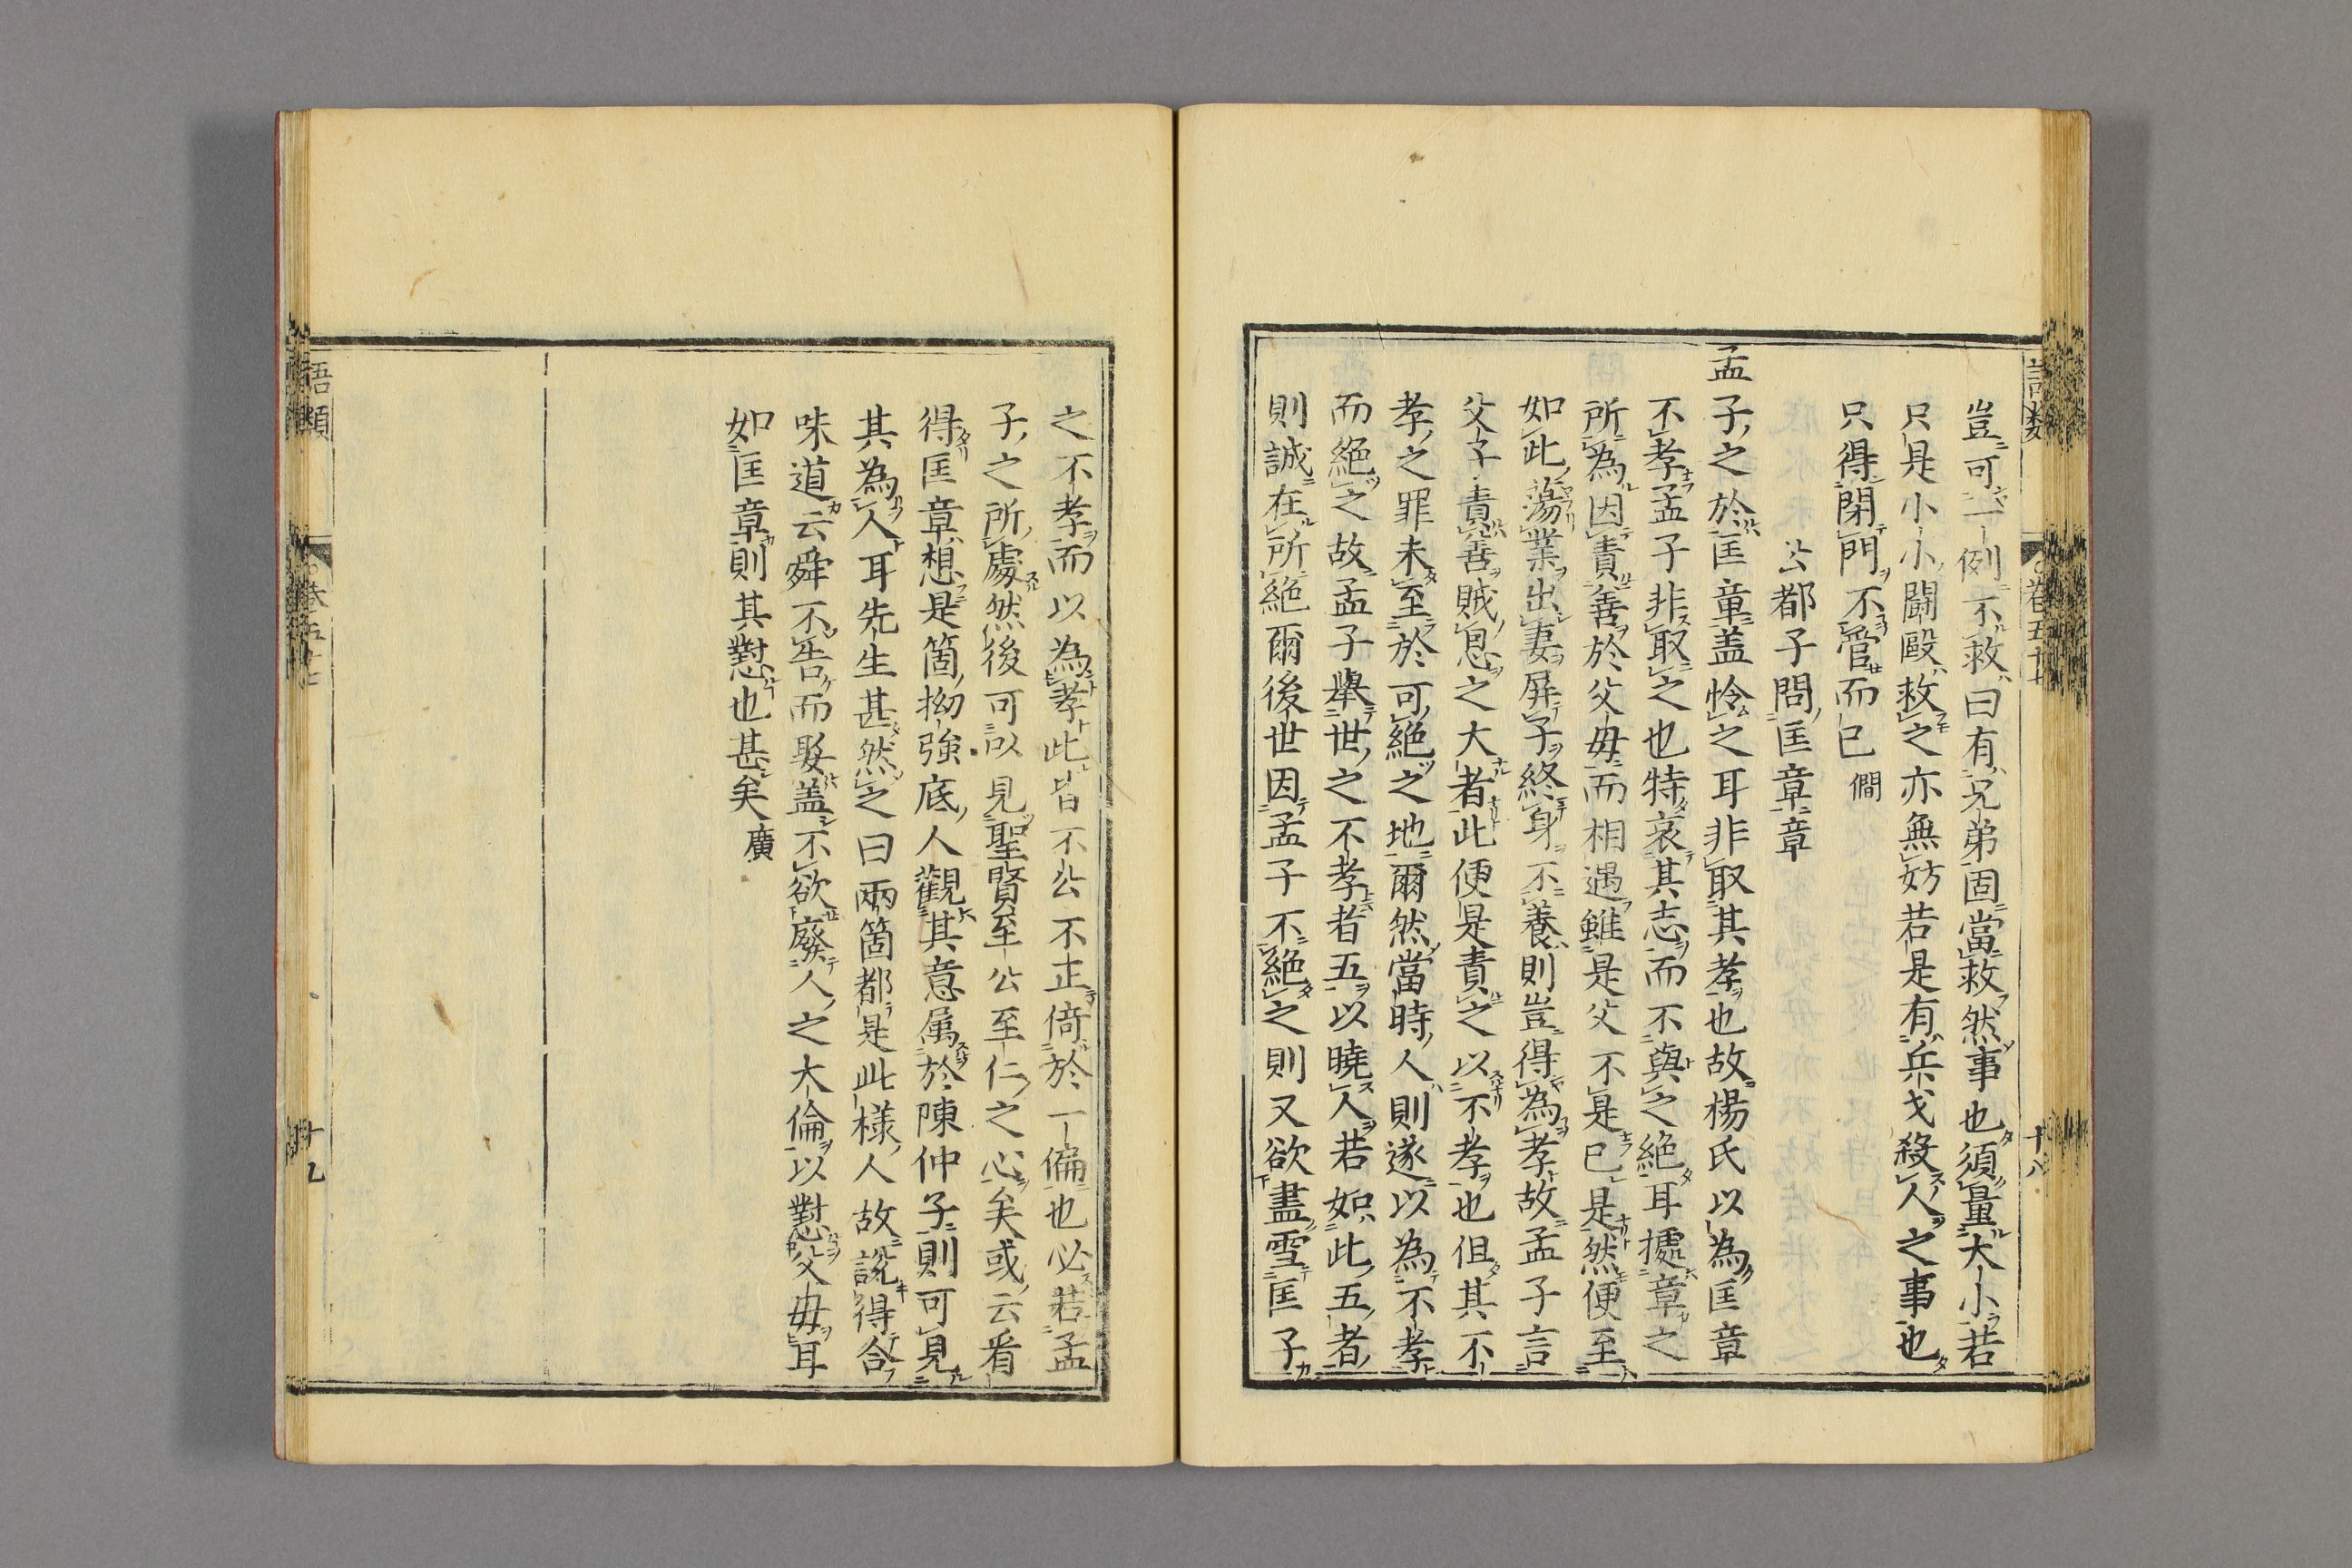 語類 卷五十七 十八
豈可一例不救曰有兄弟固當救然事也須量大小若
只是小小鬪毆救之亦無妨若是有兵戈殺人之事也
只得閉門不管而已 僩
公都子問匡章章
孟子之於匡章盖怜之耳非取其孝也故楊氏以為匡章
不孝孟子非取之也特哀其志而不與之絶耳據章之
所為因責善於父毋而相遇雖是父不是已是然便至
如此蕩業出妻屏子終身不養則豈得為孝故孟子言
父子責善賊息之大者此便是責之以不孝也但其不
孝之罪未至於可絶之地爾然當時人則遂以為不孝
而絶之故孟子舉世之不孝者五以曉人若如此五者
則誠在所絶爾後世因孟子不絶之則又欲盡雪匡子
之不孝而以為孝此皆不公不正倚於一偏也必若孟
子之所處然後可以見聖賢至公至仁之心矣或云看
得匡章想是箇拗強底人觀其意属於陳仲子則可見
其為人耳先生甚然之曰兩箇都是此樣人故說得合
味道云舜不告而娶盖不欲廢人之大倫以懟父毋耳
如匡章則其懟也甚矣 廣
語類 卷五十七 十九